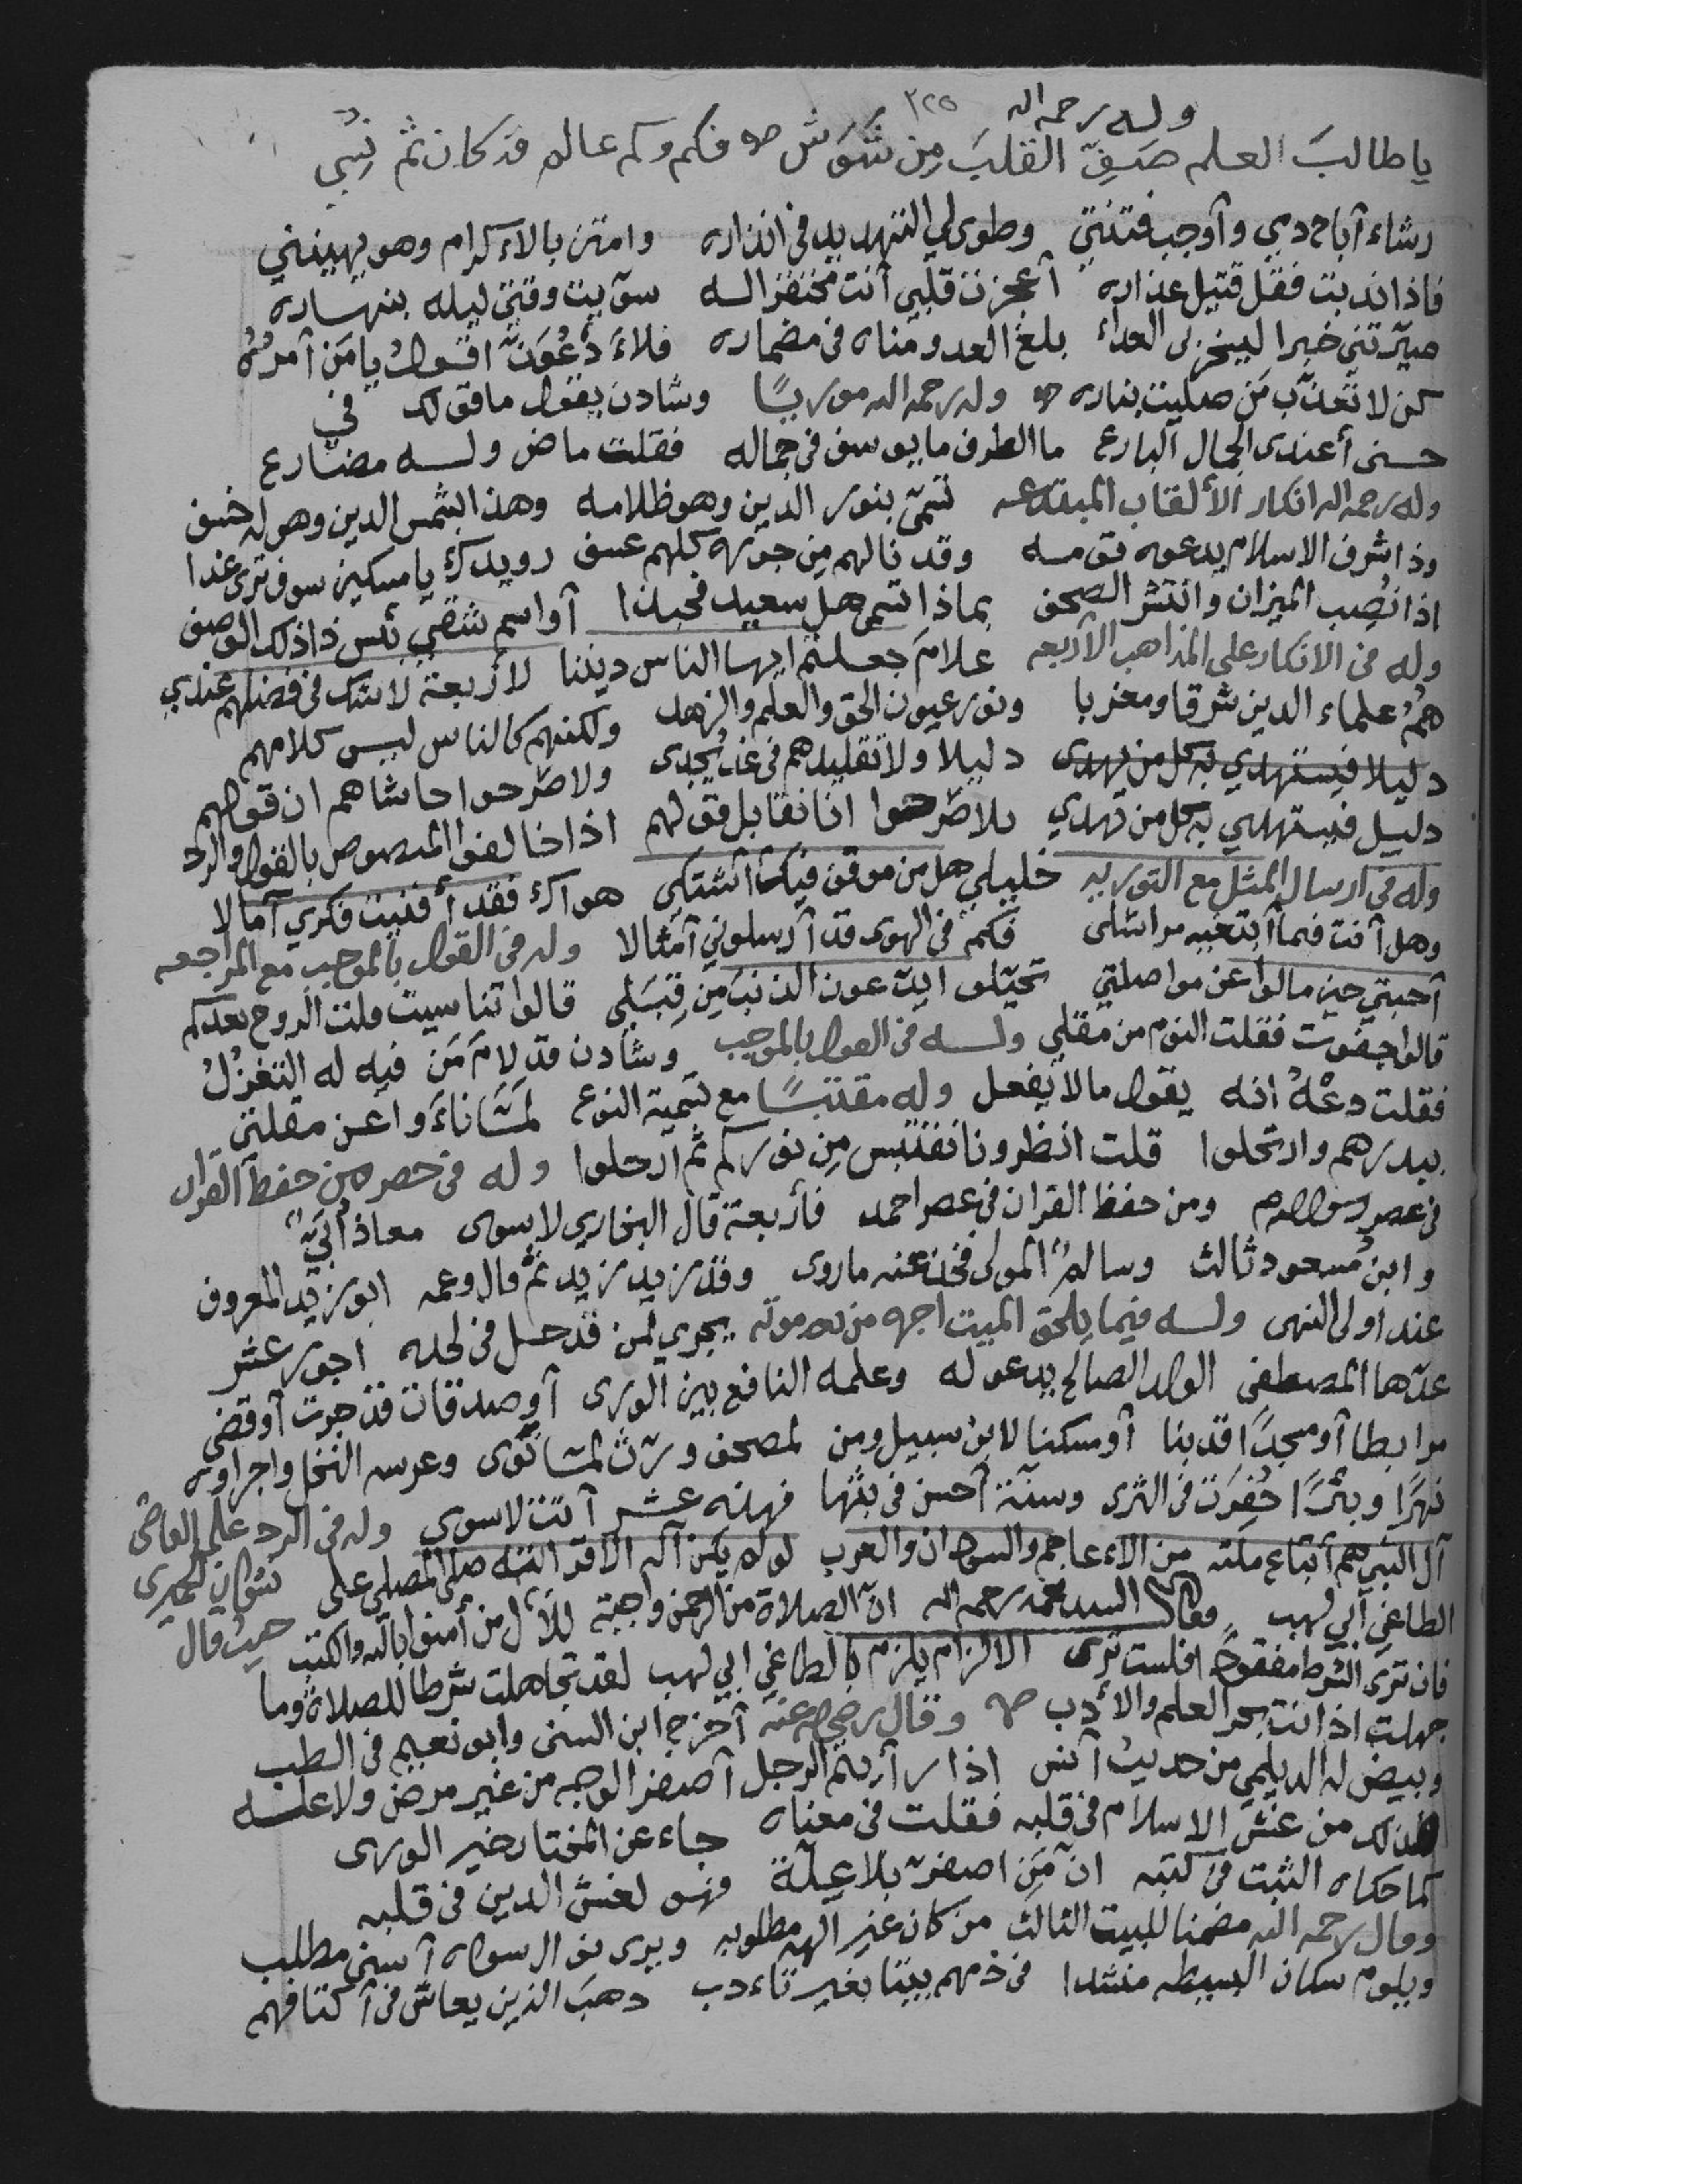 وله رحمه الله ٣٢٥
يا طالبَ العلم صَفِّ القلبَ مِن شَوَشٍ فكم وكم عالم قد كان ثم نُسِي
رشاء أباح دمي وأوجب فتنتي وطوى لي التهديد في انذاره وامتن بالاكرام وهو يهينني
فاذا نديت فقل قتيل عذاره أعجزت قلبي أنت محتفز الــه سوّيت وقتي ليله بنهاره
صيّرتني خبرا ليخزى العداء بلغ العدو مناه في مضماره فلاءَدعُوَنّ اقول يا مَن آمرُه
كن لا تعذّب مَن صليت بناره وله رحمه الله موريًا وشادن يقول ما قولك في
حسنى أعندى الجمال البارع ما الطرف ما يوسف في جماله فقلت ماض ولــه مضارع
وله رحمه الله انكار الألقاب المبتدعه تسمّى بنور الدين وهو ظلامه وهذا بشمس الدين وهو له خسف
وذا شرف الاسلام يدعوه قومــه وقد نالهم مِن جوره كلهم عسف رويدك يا مسكين سوف ترى غدا
اذا نُصِب الميزان وانتشر الصحف بماذا تسمى هل سعيد فحبذا أو اسم شقي بئس ذا ذلك الوصف
وله في الانكار على المذاهب الأربعه علامَ جعلتم ايها الناس ديننا لأربعة لا شك في فضلهم عندي
هُمُ علماء الدين شرقا ومغربا ونور عيون الحق والعلم والزهد ولكنهم كالناس ليس كلامهم
دليلا فيستهدي به كل من يهدى دليلا ولا تقليدهم في غد يُجدى ولا صَرحوا حاشاهم ان قولهم
دليل فيستهدي به كل من تهدي بلا صَرحوا انا نقابل قولهم اذا خالف المنصوص بالقول والرد
وله في ارسال المثل مع التوريه خليلي هل من موقف فيكما أشتكي هواك فقد أفنيت فكري آمالا
وهل أفت فيما أبتغيه مراسلى فكم في الهوى قد أرسلوني أمثالا وله في القول بالموجب مع المراجعه
أحبتي حين مالوا عن مواصلتي تحيّلو ايدّعون الذنبَ مِن قِبَلِي قالوا تناسيت قلت الروح بعدكم
قالوا جفوت فقلت النوم من مقلي ولــه في القول بالموجب وشادن قد لامَ مَن فيه له التغزلُ
فقلت دعْهُ انه يقول ما لا يفعل وله مقتبسًا مع تسمية النوع لمّا ناءَوا عن مقلتي
ببدرهم وارتحلوا قلت انظرونا نقتبس مِن نوركم ثم ارحلوا وله في حصر من حفظ القرآن
في عصر رسول الله ومن حفظ القران في عصر احمد فأربعة قال البخاري لا سوى معاذ أُبَيٌّ
وابن مسعود ثالث وسالمٌ المولى فخذ عنه ما روى وقد زيد زيد ثم قال وعمه ابو زيد المعروف
عند اولى النهى ولــه فيما يلحق الميت اجره من بعد موته يجري لمن قد حل في لحده اجور عشر
عدّها المصطفى الولد الصالح يدعو له وعلمه النافع بين الورى أو صدقات قد جرت أو قضى
مرابطا أو مسجدًا قد بنا أو مسكنا لابن سبيل ومن لمصحف ورّث لمّا ثوى وغرسه النخل واجراوه
نهرًا وبئرًا حُفِرَت في الثرى وسنّة أحسن في بثّها فهذه عشر أتت لا سوى وله في الرد على القاضى
آل النبي هم أتباع ملته من الاعاجم والسودان والعرب لو لم يكن آله الا قرابته صلى المصلى على نشوان الحميرى
الطاغي أبي لهب وقال السيد محمد رحمه الله انّ الصلاة من الرحمن واجبة للآل من أمنوا بالله والكتب حيث قال
فان ترى الشرط مفقودًا فلست ترى الالزام يلزم بالطاغي ابي لهب لقد تجاهلت شرطا للصلاة وما
جهلت اذ انت بحر العلم والأدب وقال رضي الله عنه أخرج ابن السنى وابو نعيم في الطب
وبيض له الديلمي من حديث أنس اذا رأيتم الرجل أصفر الوجه من غير مرض ولا علــه
فذلك من غش الاسلام في قلبه فقلت في معناه جاء عن المختار خير الورى
كما حكاه الثبت في كتبه انّ مَن اصفرّ بلا عِلّة فهو لغش الدين في قلبه
وقال رحمه الله مضمنا للبيت الثالث من كان غير الهه مطلوبه ويرى نوال سواه أسنى مطلب
ويلوم سكان البسيطه منشدا في ذمهم بيتا بغير تاءدب ذهبَ الذين يعاش في أكنافهم